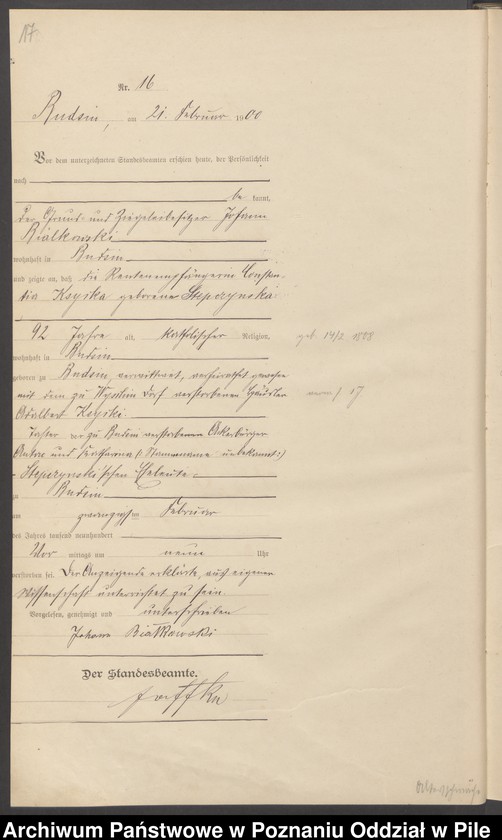 17.
Nr. 16
Budsin, am 21. Februar 1900
Vor dem unterzeichneten Standesbeamten erschien heute, der Persönlichkeit
nach
be kannt,
der Grund- und Ziegeleibesitzer Johann
Bialkowski
wohnhaft in Budsin
und zeigte an, daß die Rentenempfängerin Constan-
tia Kszika geborene Stepczynska
92 Jahre alt, katholischer Religion,
geb. 14/2 1808
wohnhaft in Budsin
geboren zu Budsin, verwittwet, verheirathet gewesen
mit dem zu Dorf verstorbenen Häusler
Adalbert
Tochter der zu Budsin verstorbenen Ackerbürger
und Katharina (: Stammname unbekannt:)
Stepczynskischen Eheleute
zu Budsin
am zwanzigsten Februar
des Jahres tausend neunhundert
Vor mittags um neun Uhr
verstorben sei. Der Anzeigende erklärte, aus eigener
Wissenschaft unterrichtet zu sein.
Vorgelesen, genehmigt und unterschrieben
Johann Białkowski
Der Standesbeamte.
Altersschwäche
Archiwum Państwowe w Poznaniu Oddział w Pile